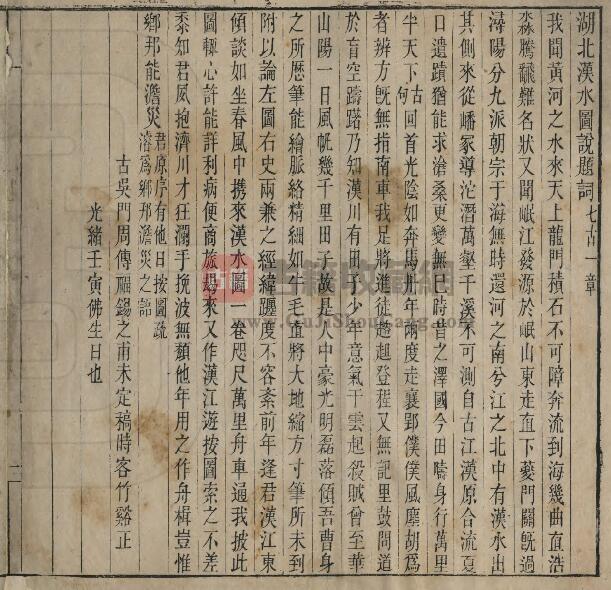 湖北漢水圖說題詞七古一章
我聞黃河之水來天上龍門積石不可障奔流到海幾曲直浩
淼騰飜難名狀又聞岷江發源於岷山東走直下夔門關旣過
潯陽分九派朝宗于海無時還河之南兮江之北中有漢水出
其側來從嶓冢導沱潛萬壑千溪不可測自古江漢原合流夏
口遺蹟猶能求滄桑更變無已時昔之澤國今田疇身行萬里
半天下古句回首光陰如奔馬卅年兩度走襄鄖僕僕風塵胡爲
者辨方旣無指南車我足將進徒趦趄登程又無記里鼓問道
於盲空躊躇乃知漢川有田子少年意氣干雲起殺賊曾至華
山陽一日風帆幾千里田子故是人中豪光明磊落傾吾曹身
之所歷筆能繪脈絡精細如牛毛直將大地縮方寸筆所未到
附以論左圖右史兩兼之經緯躔度不容紊前年逢君漢江東
傾談如坐春風中携來漢水圖一卷咫尺萬里舟車通我披此
圖輒心許能詳利病便商旅曷來又作漢江遊按圖索之不差
黍知君夙抱濟川才狂瀾手挽波無頹他年用之作舟楫豈惟
鄉邦能澹災君原序有他日按圖疏溶爲鄉邦澹災之語
古吳門周傳禠錫之甫未定稿時客竹谿正
光緒壬寅佛生日也
二
www.GuJiShouCang.com